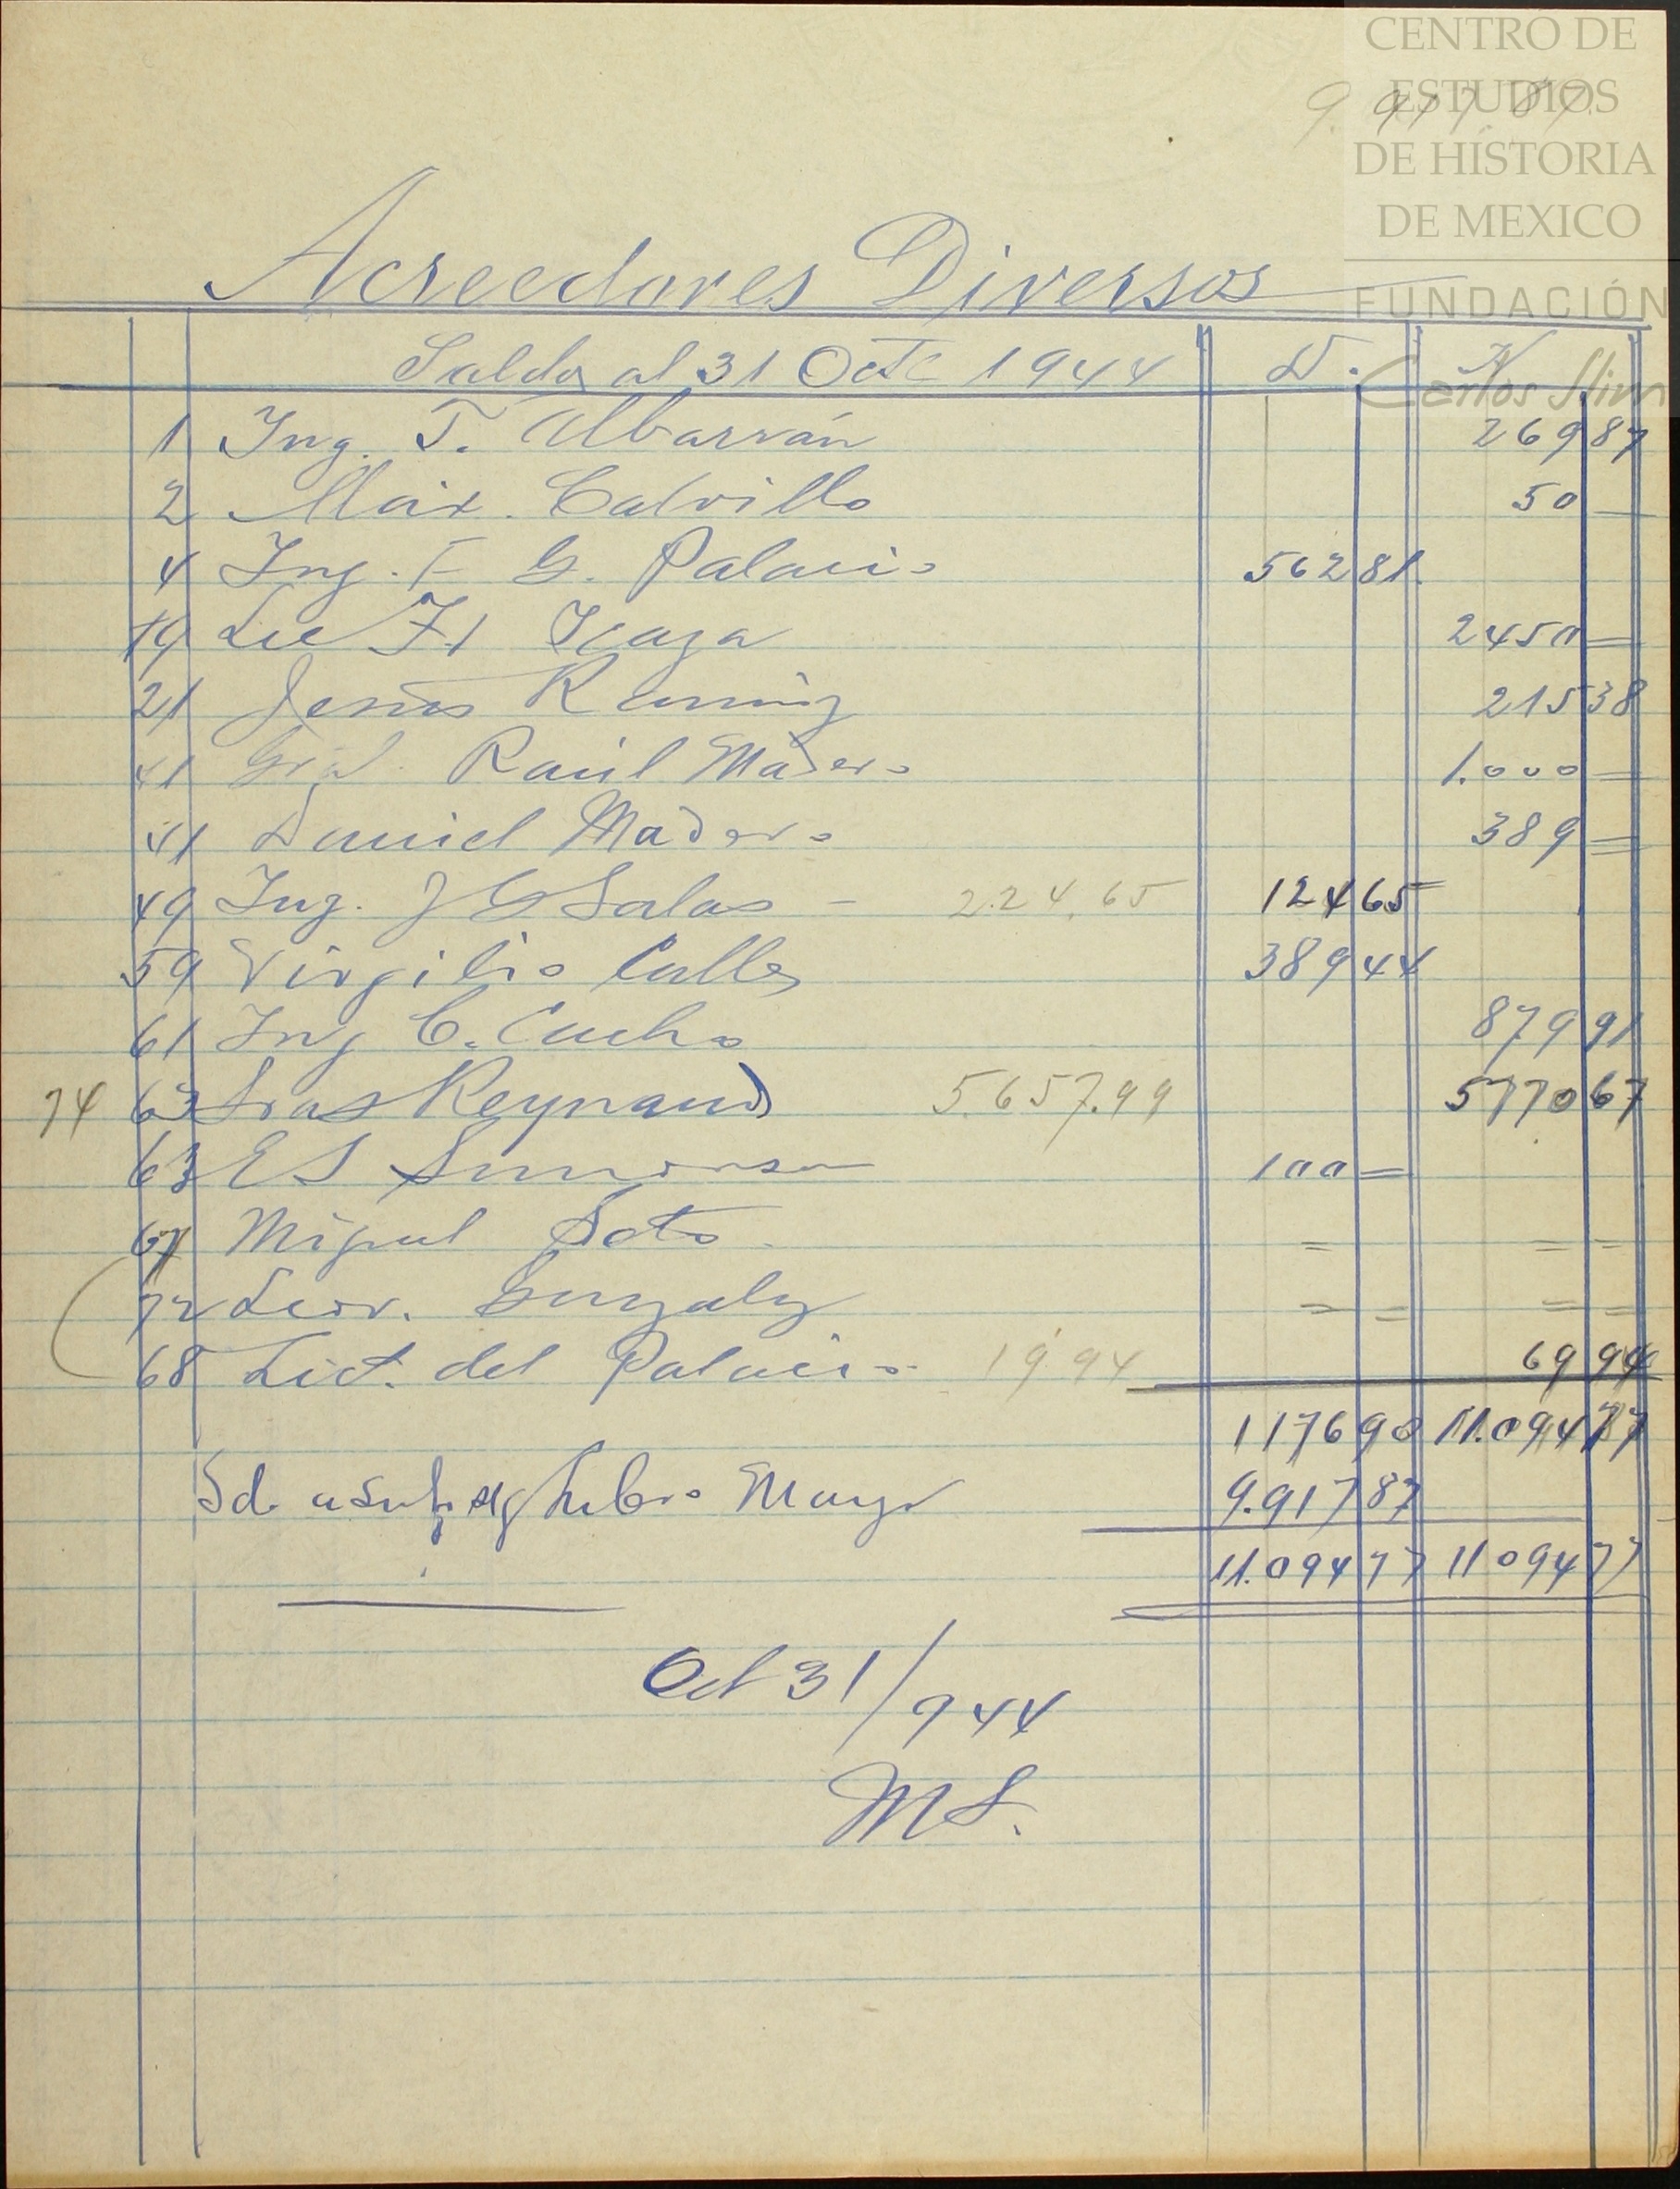 CENTRO DE
ESTUDIOS
DE HISTORIA
DE MEXICO
FUNDACIÓN
Carlos Slim
9.917.87
Acreedores Diversos
Saldos al 31 Octe 1944 D. H
1 Ing. T. Albarrán 269 87
2 Max. Calvillo 50 —
4 Ing. F G. Palacio 562 81
19 Lic Icaza 2450 =
21 Jesús Ramirez 215 38
41 Gral. Raúl Madero 1.000 =
41 Daniel Madero 389 =
49 Ing. J G Salas - 224.65 124 65
59 Virgilio Calles 389 44
61 Ing C. Cacho 879 91
74 63 Sras Reynaud 5.657.99 5770 67
63 E S 100 =
67 Miguel Soto = = =
72 Leov. Gonzalez = = = =
68 Lict. del Palacio 19.94 69 94
1176 90 11.094 77
Sd. a Libro Mayor 9.917 87
11.094 77 11094 77
Oct 31/944
MS.